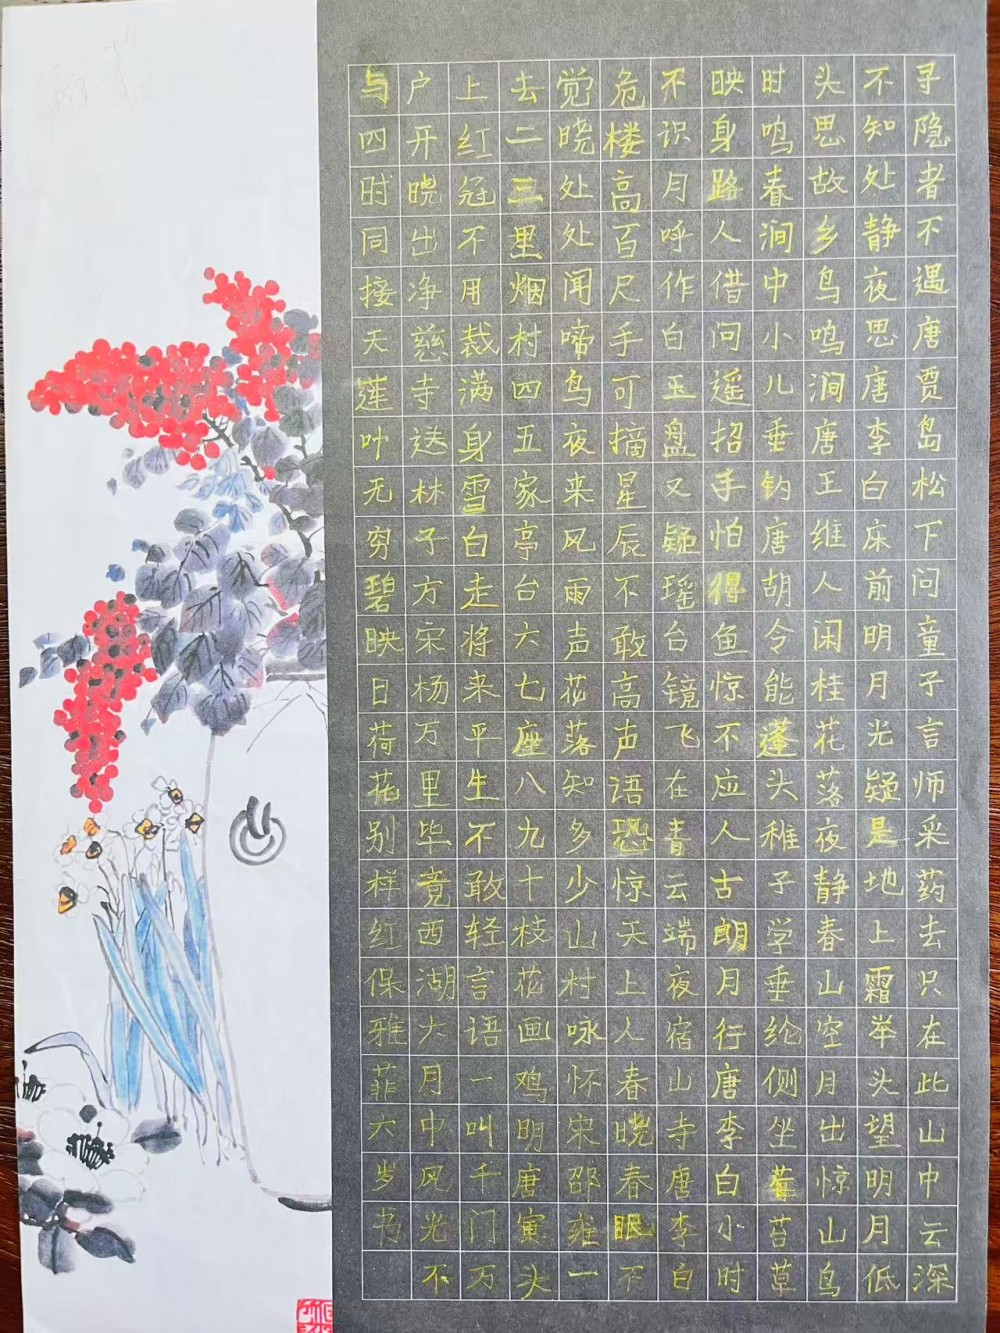 寻隐者不遇唐贾岛松下问童子言师采药去只在此山中云深
不知处静夜思唐李白床前明月光疑是地上霜举头望明月低
头思故乡鸟鸣涧唐王维人闲桂花落夜静春山空月出惊山鸟
时鸣春涧中小儿垂钓唐胡令能蓬头稚子学垂纶侧坐莓苔草
映身路人借问遥招手怕得鱼惊不应人古朗月行唐李白小时
不识月呼作白玉盘又疑瑶台镜飞在青云端夜宿山寺唐李白
危楼高百尺手可摘星辰不敢高声语恐惊天上人春晓春眠不
觉晓处处闻啼鸟夜来风雨声花落知多少山村咏怀宋邵雍一
去二三里烟村四五家亭台六七座八九十枝花画鸡明唐寅头
上红冠不用裁满身雪白走将来平生不敢轻言语一叫千门万
户开晓出净慈寺送林子方宋杨万里毕竟西湖六月中风光不
与四时同接天莲叶无穷碧映日荷花别样红保雅菲六岁书